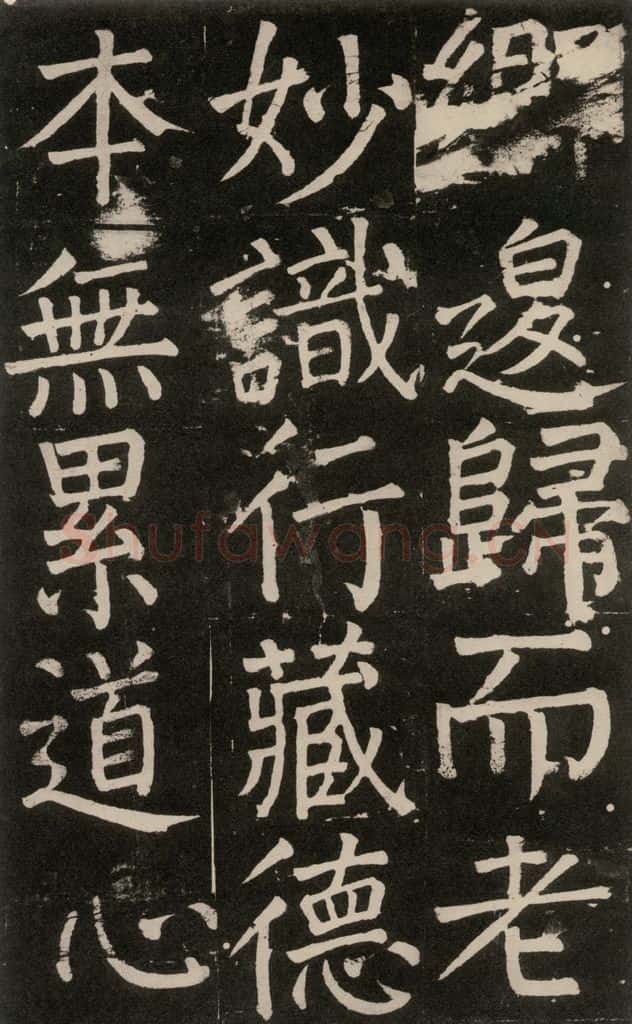 歸而老
妙識行藏德
本無累道心
Shufawang.CN